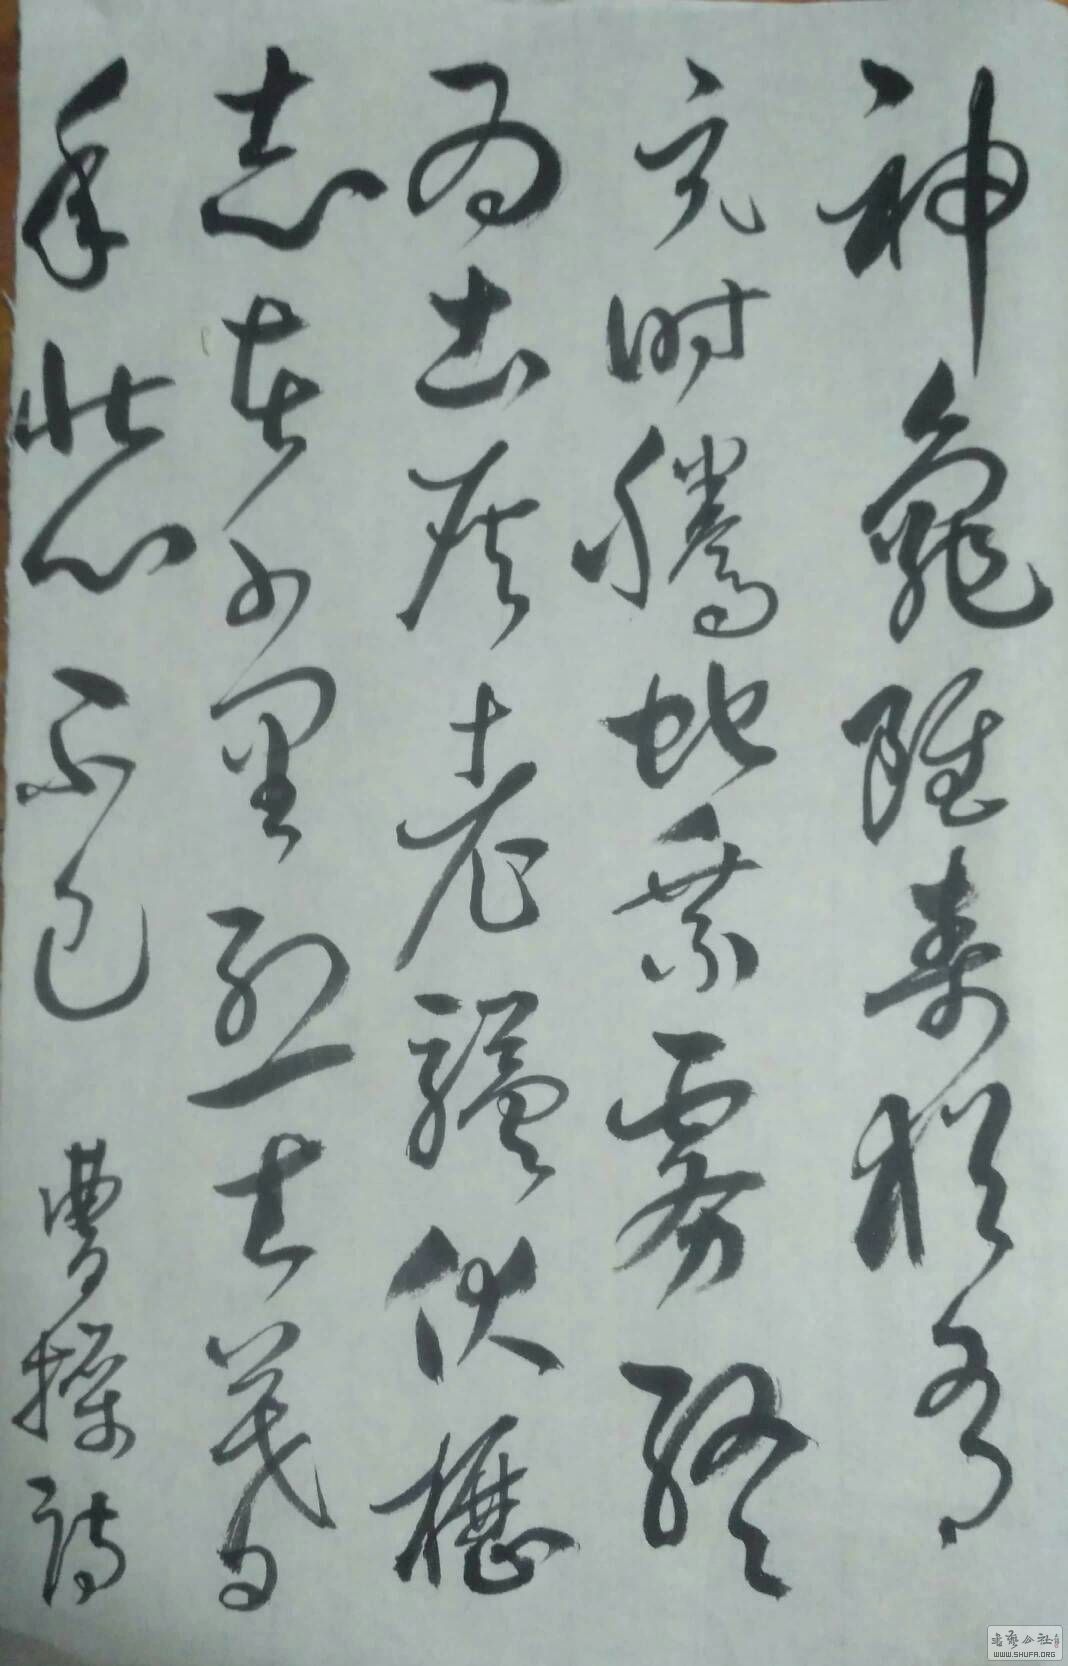 神龜雖壽猶有
竟時騰蛇乘霧終
為土灰老驥伏櫪
志在千里烈士暮
年壯心不已 曹操詩
书艺公社
WWW.SHUFA.ORG